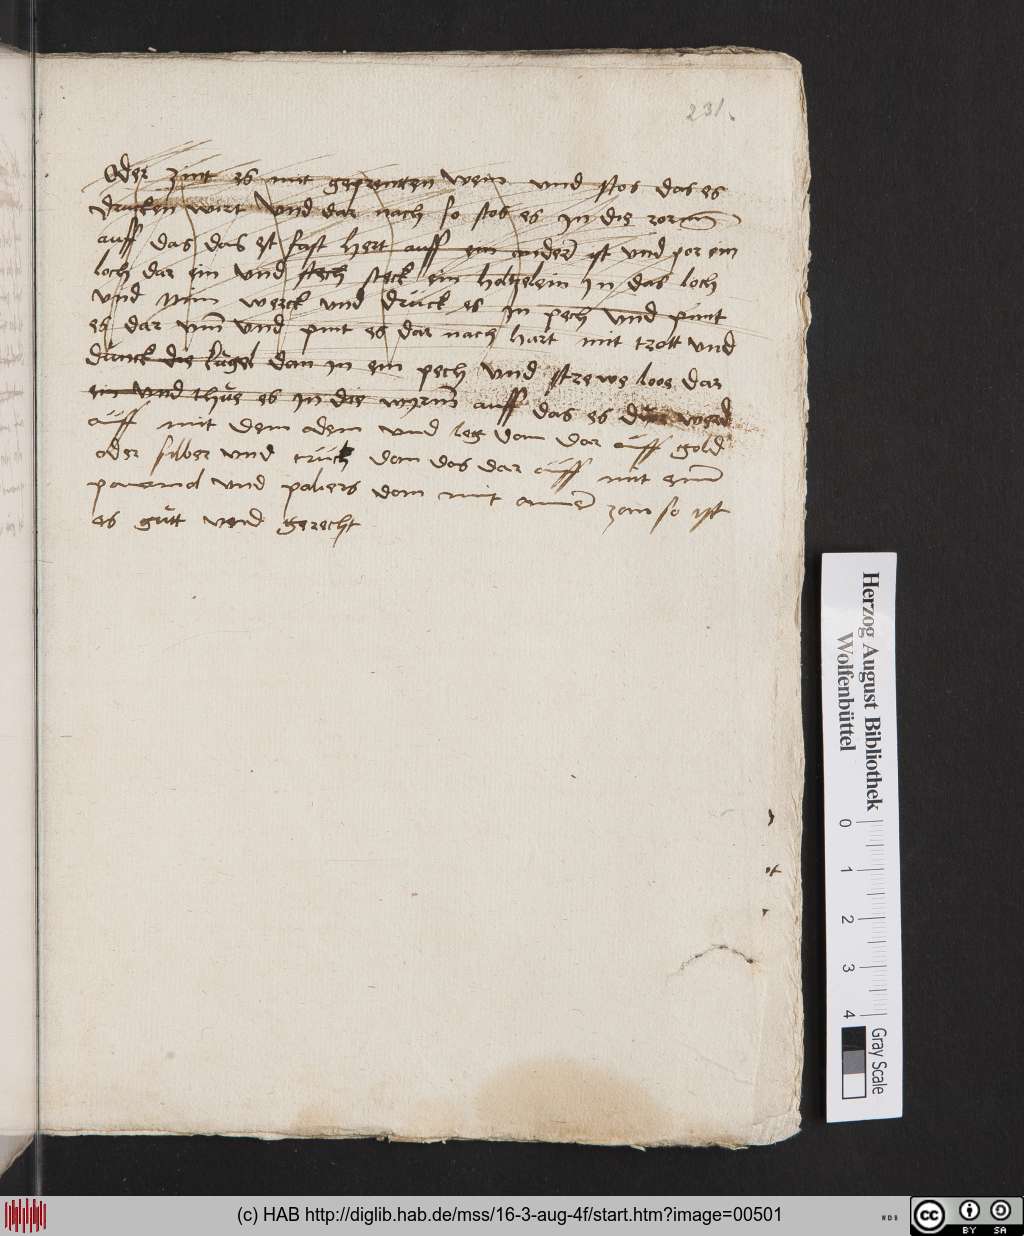 231.
Oder zint es mit geprenten wein und stos das es
drucken wirt und dar nach so stos es in die rorn
auff das das est fast hert auff ein ander ist und por ein
loch dar ein und stech steck ein holtzlein in das loch
und nim werck und druck es in pech und pint
es dar umb und pint es dar nach hart mit trott und
dunck die kugel dan in ein pech und strewe loos dar
ein und thue es in die auff das es werd
auff mit dem odem und leg dan dar auff gold
oder silber und truck dan das dar auff mit einem
und poliers dan mit zan so ist
es gutt vend gerecht
ot
Herzog August Bibliothek
Wolfenbüttel
0 1 2 3 4
Gray Scale
(c) HAB http://diglib.hab.de/mss/16-3-aug-4f/start.htm?image=00501
WDB
cc BY SA